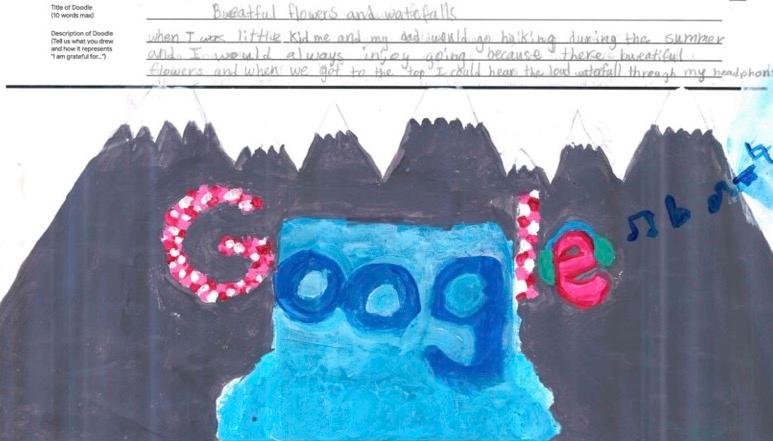 Title of Doodle
(10 words max)
Bueatful flowers and watefalls
Description of Doodle
(Tell us what you drew
and how it represents
"I am grateful for...")
when I was little kid me and my dad would go haiking during the summer
and I would always injoy going because there bueatiful
flowers and when we got to the top I could hear the loud watefall through my headphones
Google